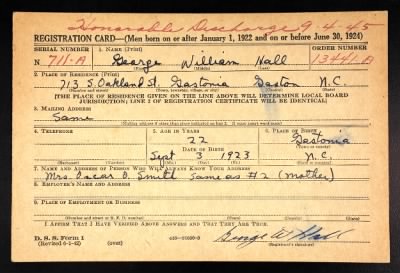 Honorable Discharge 9-4-45
REGISTRATION CARD—(Men born on or after January 1, 1922 and on or before June 30, 1924)
SERIAL NUMBER 1. NAME (Print) ORDER NUMBER
N 711-A George William Hall 13441-A
(First) (Middle) (Last)
2. PLACE OF RESIDENCE (Print)
713 S. Oakland St. Gastonia Gaston N.C.
(Number and street) (Town, township, village, or city) (County) (State)
[THE PLACE OF RESIDENCE GIVEN ON THE LINE ABOVE WILL DETERMINE LOCAL BOARD
JURISDICTION; LINE 2 OF REGISTRATION CERTIFICATE WILL BE IDENTICAL]
3. MAILING ADDRESS
Same
[Mailing address if other than place indicated on line 2. If same insert word same]
4. TELEPHONE 5. AGE IN YEARS 6. PLACE OF BIRTH
22 Gastonia
DATE OF BIRTH (Town or county)
Sept 3 1923 N.C.
(Exchange) (Number) (Mo.) (Day) (Yr.) (State or country)
7. NAME AND ADDRESS OF PERSON WHO WILL ALWAYS KNOW YOUR ADDRESS
Mrs. Oscar D. Smith Same as #2 (mother)
8. EMPLOYER'S NAME AND ADDRESS
9. PLACE OF EMPLOYMENT OR BUSINESS
(Number and street or R. F. D. number) (Town) (County) (State)
I AFFIRM THAT I HAVE VERIFIED ABOVE ANSWERS AND THAT THEY ARE TRUE.
D. S. S. Form 1
(Revised 6-1-42) (over) George W Hall
(Registrant's signature)